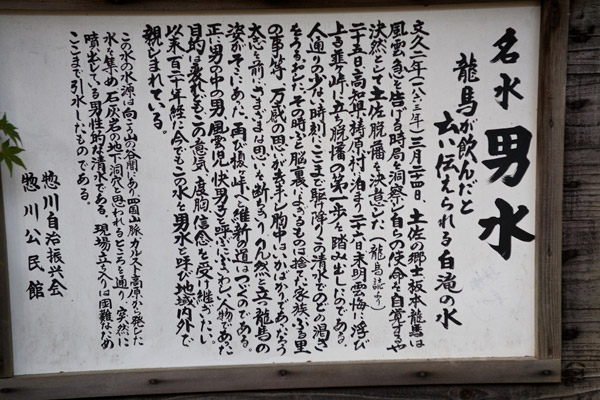 名水 男水
龍馬が飲んだと
云い伝えられる白滝の水
文久二年(一八六二年)三月二十四日、土佐の郷士坂本龍馬は
風雲急を告げる時局を洞察し自らの使命を自覚するや
決然として土佐脱藩を決意した(龍馬読より)
二十五日高知県梼原村に泊まり二十六日未明雲海に浮び
上る韮ヶ峠に立ち脱藩の第一歩を踏み出したのである。
人通りの少い時刻にここまで駆け降りこの清水でのどの渇き
をうるおした。その時ふと脳裏によぎるものは捨てた家族、ふる里
の事等、万感の思いが去来し胸中はいかばかりであったろう
大志を前にさまざまな思いを断ちきりりん然と立つ龍馬の
姿がそこにあった。再び榎ヶ峠へと維新の道はつづくのである。
正に男の中の男、風雲児、快男子と呼ぶにふさわしい人物であった
目的は異れどもこの意気、度胸、信念を受け継ぎたいし
以来百二十年経た今でもこの水を男水と呼び地域内外で
親しまれている。
この水の水源は向える山の谷間にあり四国山脈カルスト高原から発した
水を集め石灰岩の地下洞穴と思われるところを通り、突然に
噴出している男性的な清水である。現場立ち入りは困難なため
ここまで引水したものである。
惣川自治振興会
惣川公民館